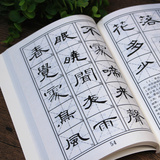 春眠不
覺曉處
處聞啼
鳥夜來
風雨聲
花
多少
54